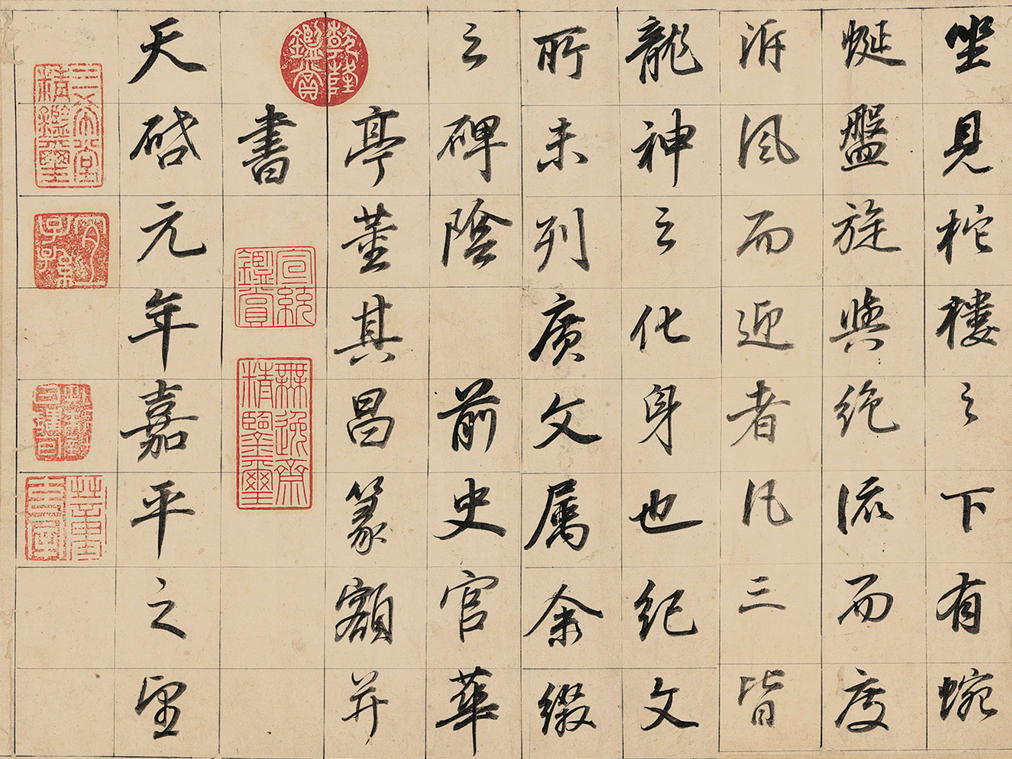 坐見柁樓之下有蜿
蜒盤旋與絶流而度
泝風而迎者凡三皆
龍神之化身也紀文
所未列廣文属余綴
之碑陰 前史官華
亭董其昌篆額并
書
天啓元年嘉平之望
乾隆鑑賞
宣統鑑賞
無逸齋精鑒璽
三希堂精鑑璽
宜子孫